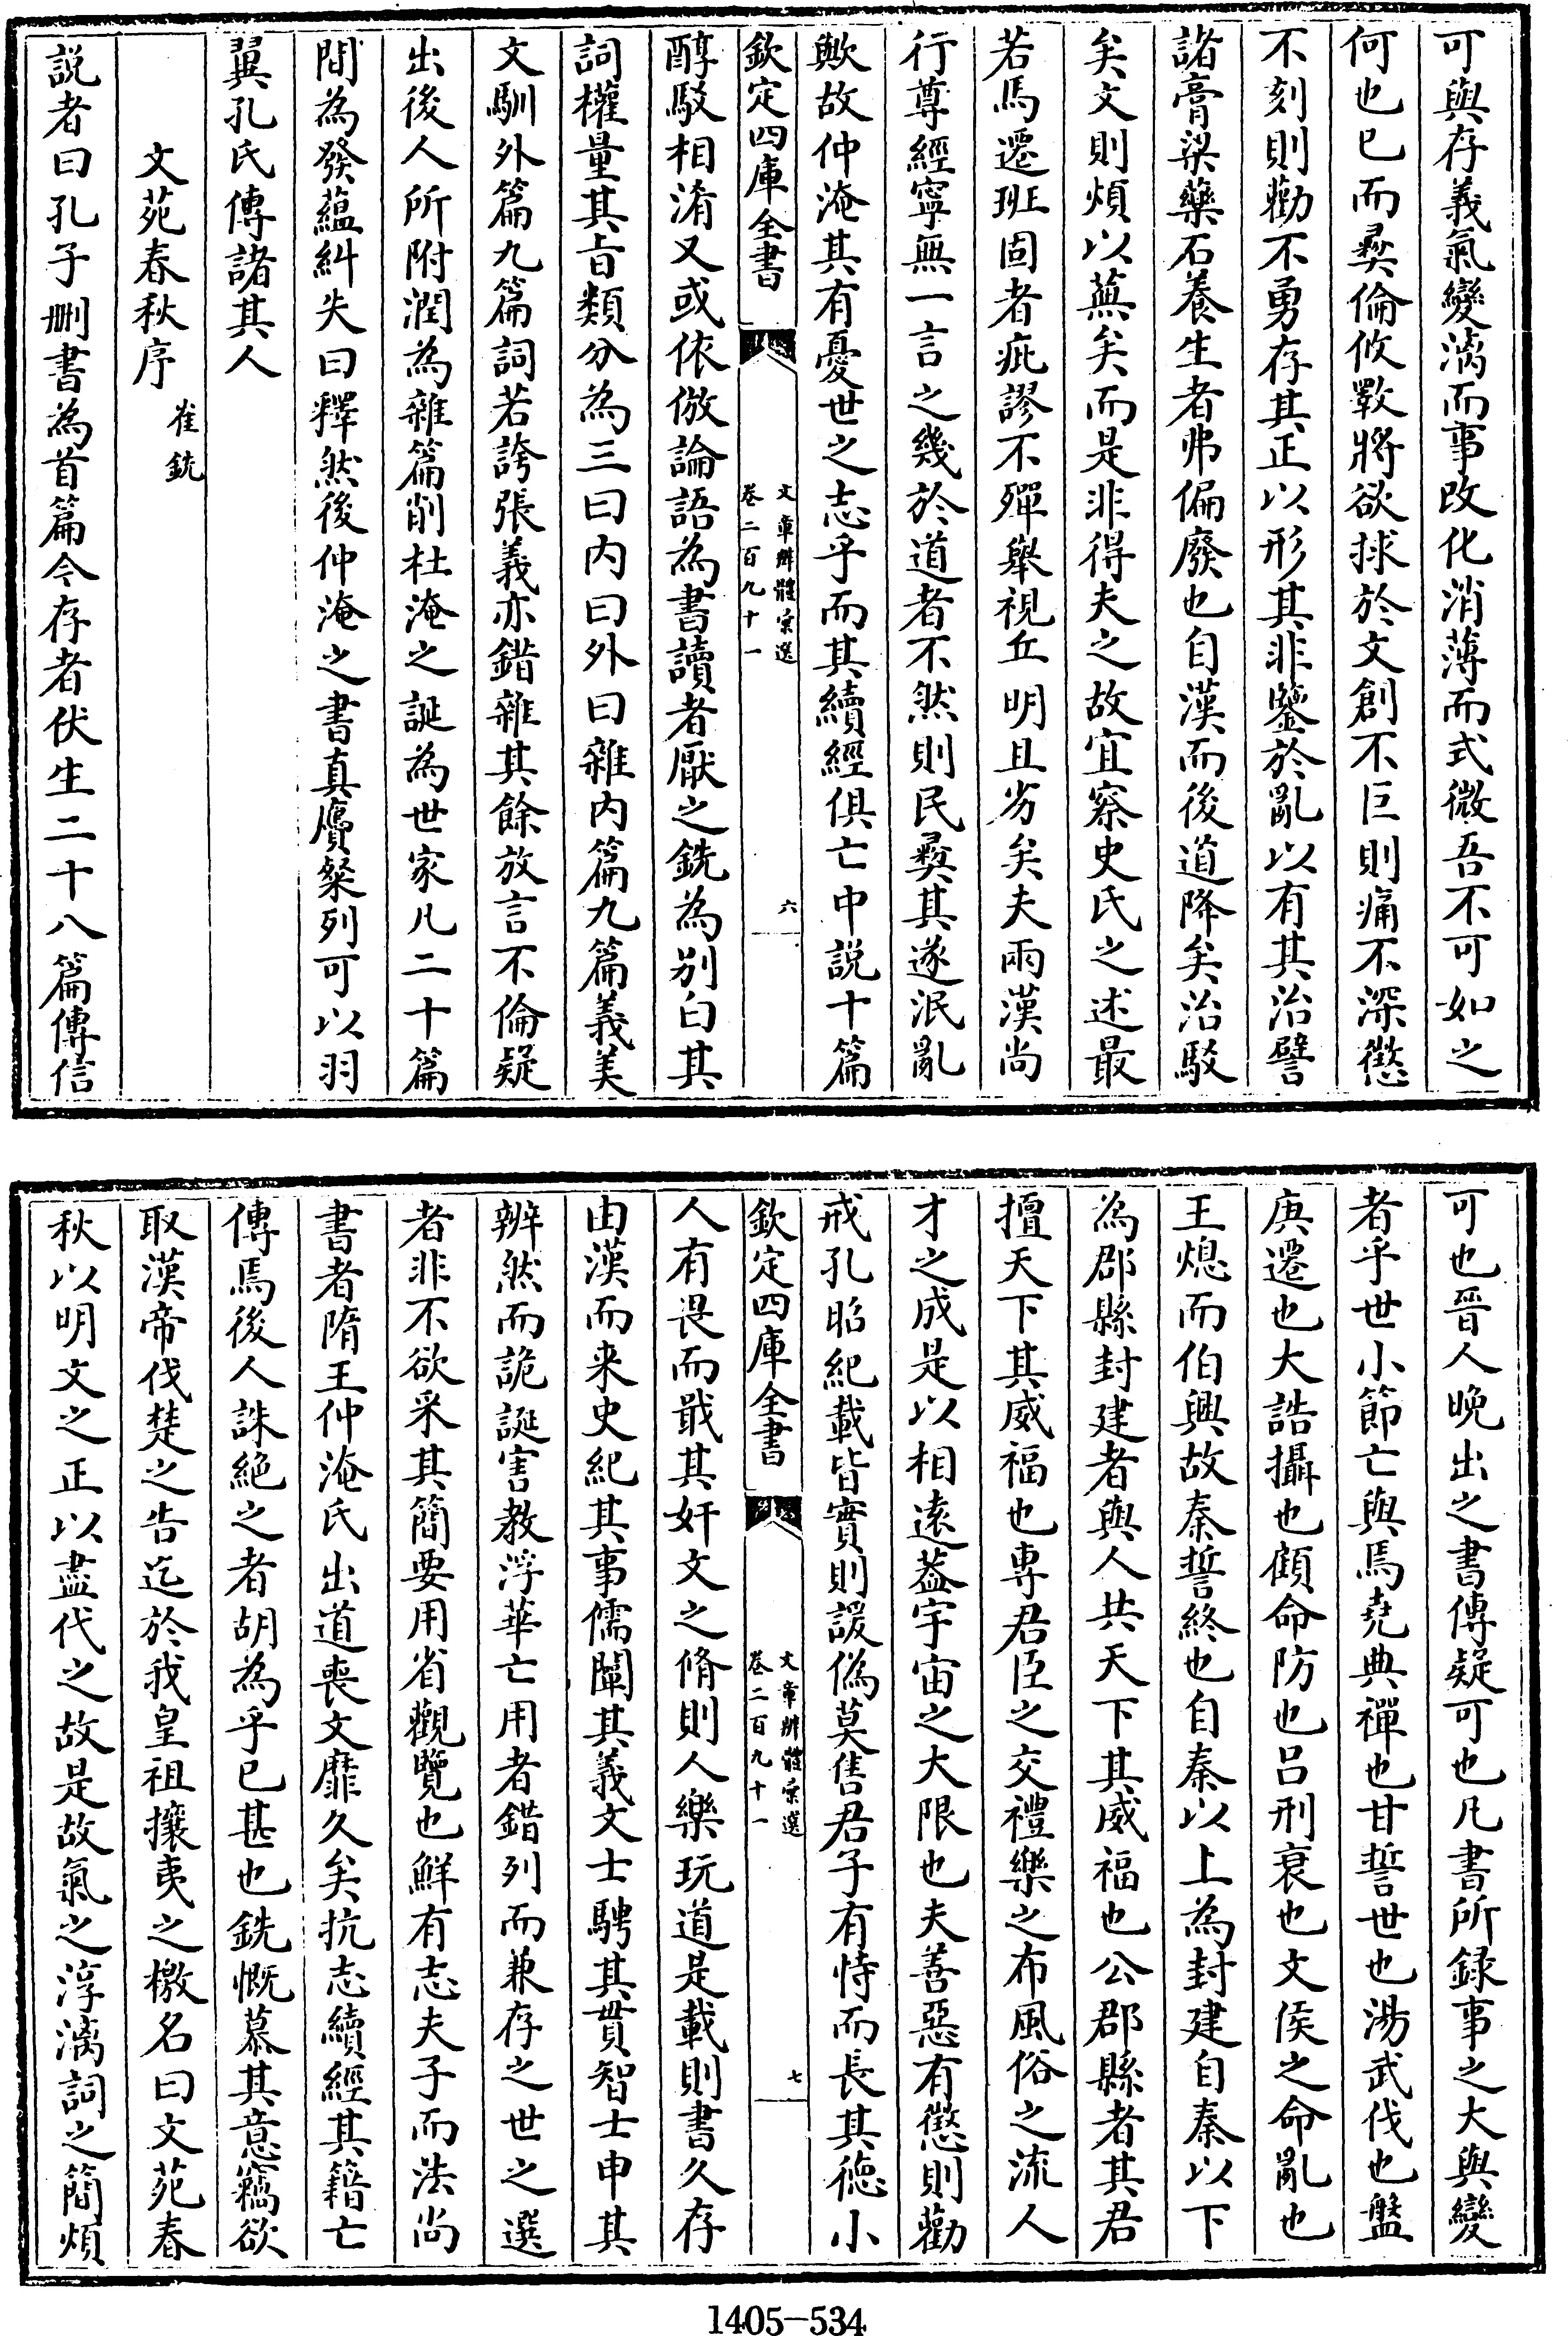 可與存義氣變漓而事改化消薄而式微吾不可如之
何也已而彛倫攸斁將欲捄於文創不巨則痛不深懲
不刻則勸不勇存其正以形其非鑒於亂以有其治譬
諸膏粱藥石養生者弗偏廢也自漢而後道降矣治駁
矣文則煩以蕪矣而是非得夫之故宜察史氏之述最
若馬遷班固者疵謬不殫舉視丘明且劣矣夫兩漢尚
行尊經寧無一言之幾於道者不然則民彛其遂泯亂
歟故仲淹其有憂世之志乎而其續經俱亡中説十篇
欽定四庫全書
文章辨體彙選
卷二百九十一
六
醇駁相淆又或依倣論語為書讀者厭之銑為别白其
詞權量其旨類分為三曰内曰外曰雜内篇九篇義美
文馴外篇九篇詞若誇張義亦錯雜其餘放言不倫疑
出後人所附潤為雜篇削杜淹之誕為世家凡二十篇
間為發蘊糾失曰釋然後仲淹之書真贋粲列可以羽
翼孔氏傳諸其人
文苑春秋序
崔銑
説者曰孔子刪書為首篇今存者伏生二十八篇傳信
可也晉人晚出之書傳疑可也凡書所録事之大與變
者乎世小節亡與焉堯典禪也甘誓世也湯武伐也盤
庚遷也大誥攝也顧命防也吕刑衰也文侯之命亂也
王熄而伯興故秦誓終也自秦以上為封建自秦以下
為郡縣封建者與人共天下其威福也公郡縣者其君
擅天下其威福也專君臣之交禮樂之布風俗之流人
才之成是以相逺葢宇宙之大限也夫善惡有懲則勸
戒孔昭紀載皆實則諼偽莫售君子有恃而長其徳小
欽定四庫全書
文章辨體彙選
卷二百九十一
七
人有畏而戢其奸文之脩則人樂玩道是載則書久存
由漢而来史紀其事儒闡其義文士騁其貫智士申其
辨然而詭誕害教浮華亡用者錯列而兼存之世之選
者非不欲采其簡要用省觀覽也鮮有志夫子而法尚
書者隋王仲淹氏出道喪文靡久矣抗志續經其籍亡
傳焉後人誅絶之者胡為乎已甚也銑慨慕其意竊欲
取漢帝伐楚之告迄於我皇祖攘夷之檄名曰文苑春
秋以明文之正以盡代之故是故氣之淳漓詞之簡煩
1405-534